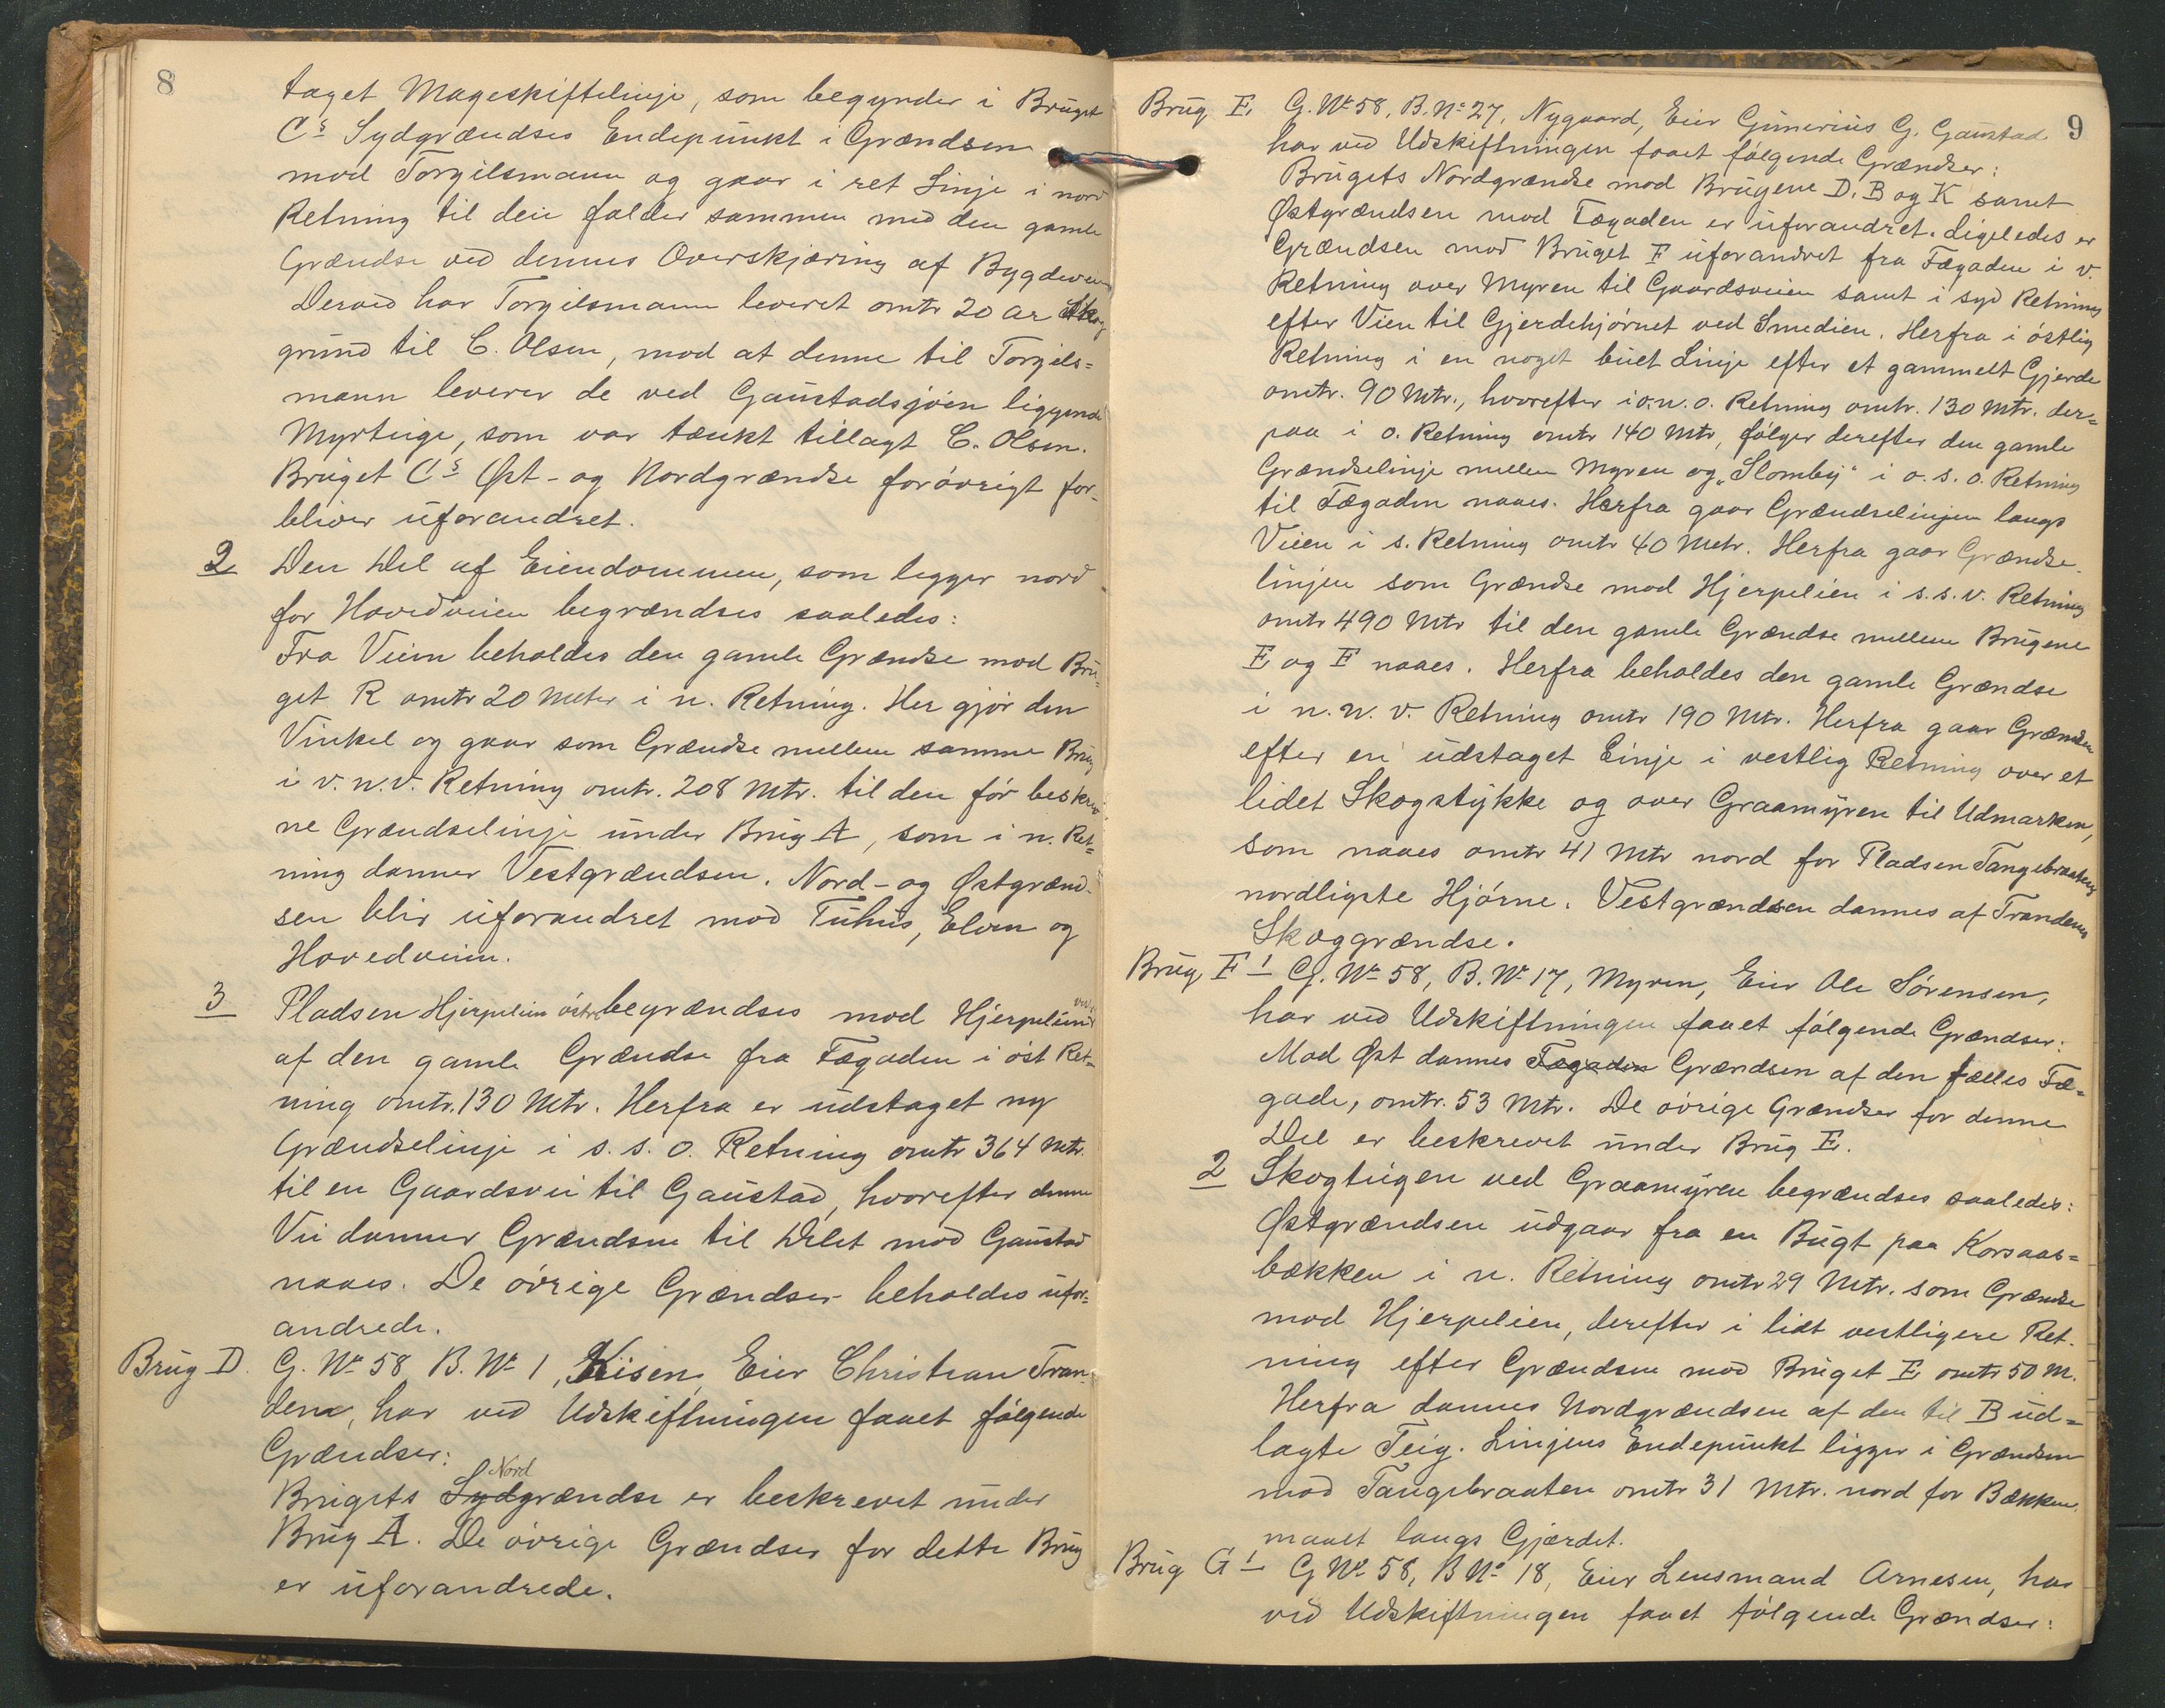 8
taget Mageskiftelinje, som begynder i Bruget
Cs Sydgrændses Endepunkt i Grændsen
mod Torgilsmann og gaar i ret Linje i nord
Retning til den falder sammen med den gamle
Grændse ved dennes Overskjæring af Bygdeveien
Derved har Torgilsmann leveret omtr 20 ar Skog
grund til C. Olsen, mod at denne til Torgils=
mann leverer de ved Gaustadsjøen liggende
Myrteige, som var tænkt tillagt C. Olsen.
Bruget Cs Øst- og Nordgrændse forøvrigt for-
bliver uforandret.
2 Den Del af Eiendommen, som ligger nord
for Hovedveien begrændses saaledes:
Fra Veien beholdes den gamle Grændse mod Bru=
get R omtr 20 Meter i n. Retning. Her gjør den
Vinkel og gaar som Grændse mellem samme Brug
i v.n.v. Retning omtr. 208 Mtr. til den før beskrev
ne Grændselinje under Brug A, som i n. Ret=
ning danner Vestgrændsen. Nord- og Østgrænd-
sen blir uforandret mod Tuhus, Elven og
Hovedveien.
3 Pladsen Hjerpelien østre begrændses mod Hjerpelien
af den gamle Grændse fra Fægaden i øst Ret=
ning omtr. 130 Mtr. Herfra er udstaget ny
Grændselinje i s. s. o. Retning omtr 364 Mtr.
til en Gaardsvei til Gaustad, hvorefter denne
Vei danner Grændsen til Delet mod Gaustad
naaes. De øvrige Grændser beholdes ufor=
andrede.
Brug D. G. No 58 B. No 1, Kiisen, Eier Christian Tran-
den, har ved Udskiftningen faaet følgende
Grændser:
Nord
Brugets Sydgrændse er beskrevet under
Brug A. De øvrige Grændser for dette Brug
er uforandrede.
9
Brug E. G. No 58, B. No 27, Nygaard, Eier Gunerius G. Gaustad
har ved Udskiftningen faaet følgende Grændser:
Brugets Nordgrændse mod Brugene D. B og K samt
Østgrændsen mod Fægaden er uforandret. Ligeledes er
Grændsen mod Bruget F uforandret fra Fægaden i v.
Retning over Myren til Gaardsveien samt i syd Retning
efter Veien til Gjerdehjørnet ved Smedien. Herfra i østlig
Retning i en noget buet Linje efter et gammelt Gjerde
omtr. 90 Mtr., hvorefter i o.n.o. Retning omtr. 130 Mtr. der=
paa i o. Retning omtr 140 Mtr, følger derefter den gamle
Grændselinje mellem Myren og „Slomby" i o. s. o. Retning
til Fægaden naaes. Herfra gaar Grændselinjen langs
Veien i s. Retning omtr 40 Metr. Herfra gaar Grændse-
linjen som Grændse mod Hjerpelien i s.s.v. Retning
omtr 490 Mtr til den gamle Grændse mellem Brugene
E og F naaes. Herfra beholdes den gamle Grændse
i n.n.v. Retning omtr 190 Mtr. Herfra gaar Grændsen
efter en udstaget Linje i vestlig Retning over et
lidet Skogstykke og over Graamyren til Udmarken,
som naaes omtr 41 Mtr nord for Pladsen Tangebraatens
nordligste Hjørne. Vestgrændsen dannes af Trandens
Skoggrændse.
Brug F 1 G. No 58, B. No 17, Myren, Eier Ole Sørensen,
har ved Udskiftningen faaet følgende Grændser:
Mod Øst dannes Fægaden Grændsen af den fælles Fæ=
gade, omtr. 53 Mtr. De øvrige Grændser for denne
Del er beskrevet under Brug E.
2 Skogteigen ved Graamyren begrændses saaledes:
Østgrændsen udgaar fra en Bugt paa Korsaas=
bækken i n. Retning omtr 29 Mtr. som Grændse
mod Hjerpelien, derefter i lidt vestligere Ret-
ning efter Grændsen mod Bruget E omtr 50 M.
Herfra dannes Nordgrændsen af den til B ud=
lagte Teig. Linjens Endepunkt ligger i Grændsen
mod Tangebraaten omtr 31 Mtr. nord for Bækken
maalt langs Gjærdet.
Brug G 1 G No 58, B No 18, Eier Lensmand Arnesen, har
ved Udskiftningen faaet følgende Grændser: